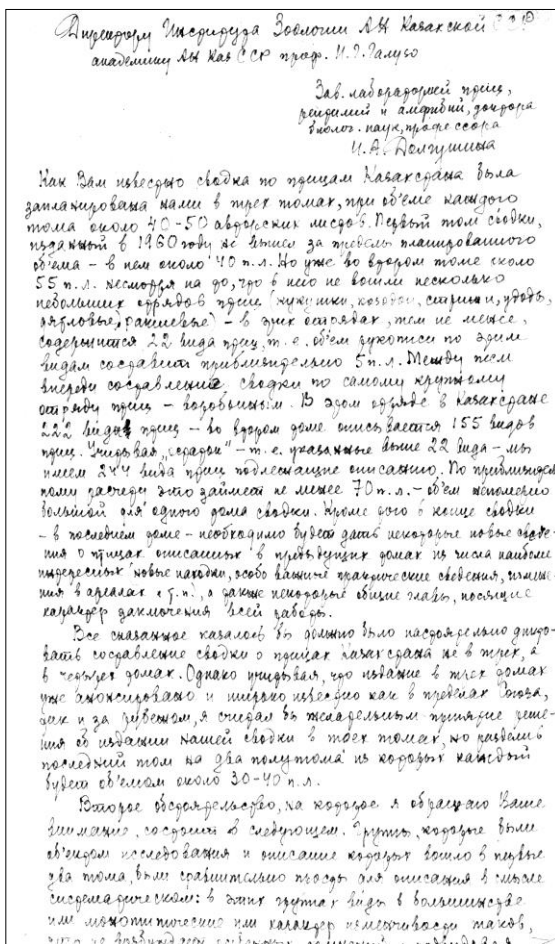 Директору Института Зоологии АН Казахской ССР
академику АН Каз ССР проф. И.Г. Галузо
Зав. лабораторией птиц,
рептилий и амфибий, доктора
биолог. наук, профессора
И.А. Долгушина
Как Вам известно сводка по птицам Казахстана была
запланирована нами в трех томах, при об'еме каждого
тома около 40-50 авторских листов. Первый том сводки,
изданный в 1960 году не вышел за пределы планированного
об'ема - в нем около 40 п.л. Но уже во втором томе около
55 п.л. несмотря на то, что в него не вошли несколько
небольших отрядов птиц (кукушки, козодои, стрижи, удоды,
дятловые, ракшевые) - в этих отрядах, тем не менее,
содержится 22 вида птиц, т.е. об'ем рукописи по этим
видам составит приблизительно 5 п.л. Между тем
впереди составление сводки по самому крупному
отряду птиц - воробьиным. В этом отряде в Казахстане
222 вида птиц - во втором томе описывается 155 видов
птиц. Учитывая - т.е. указанные выше 22 вида - мы
имеем 244 вида птиц подлежащие описанию. По
расчету это займет не менее 70 п.л. - об'ем непомерно
большой для одного тома сводки. Кроме того в конце сводки
- в последнем томе - необходимо будет дать некоторые новые
о птицах описанных в предыдущих томах из числа наиболее
интересных новые находки, особо важные практические сведения,
в ареалах и т.п., а также некоторые общие главы, носящие
характер заключения всей работы.
Все сказанное казалось бы должно было настоятельно
составление сводки о птицах Казахстана не в трех, а
в четырех томах. Однако учитывая, что издание в трех томах
уже анонсировано и широко известно как в пределах Союза,
так и за рубежом, я считал бы желательным принятие
об издании нашей сводки в трех томах, но разделив
последний том на два полутома из которых каждый
будет об'емом около 30-40 п.л.
Второе обстоятельство, на которое я обращаю Ваше
внимание, состоит в следующем. Группы, которые были
об'ектом исследования и описание которых вошло в первые
два тома, были сравнительно просты для описания в смысле
систематическом: в этих группах виды в большинстве
или монотипические или характер изменчивости таков,